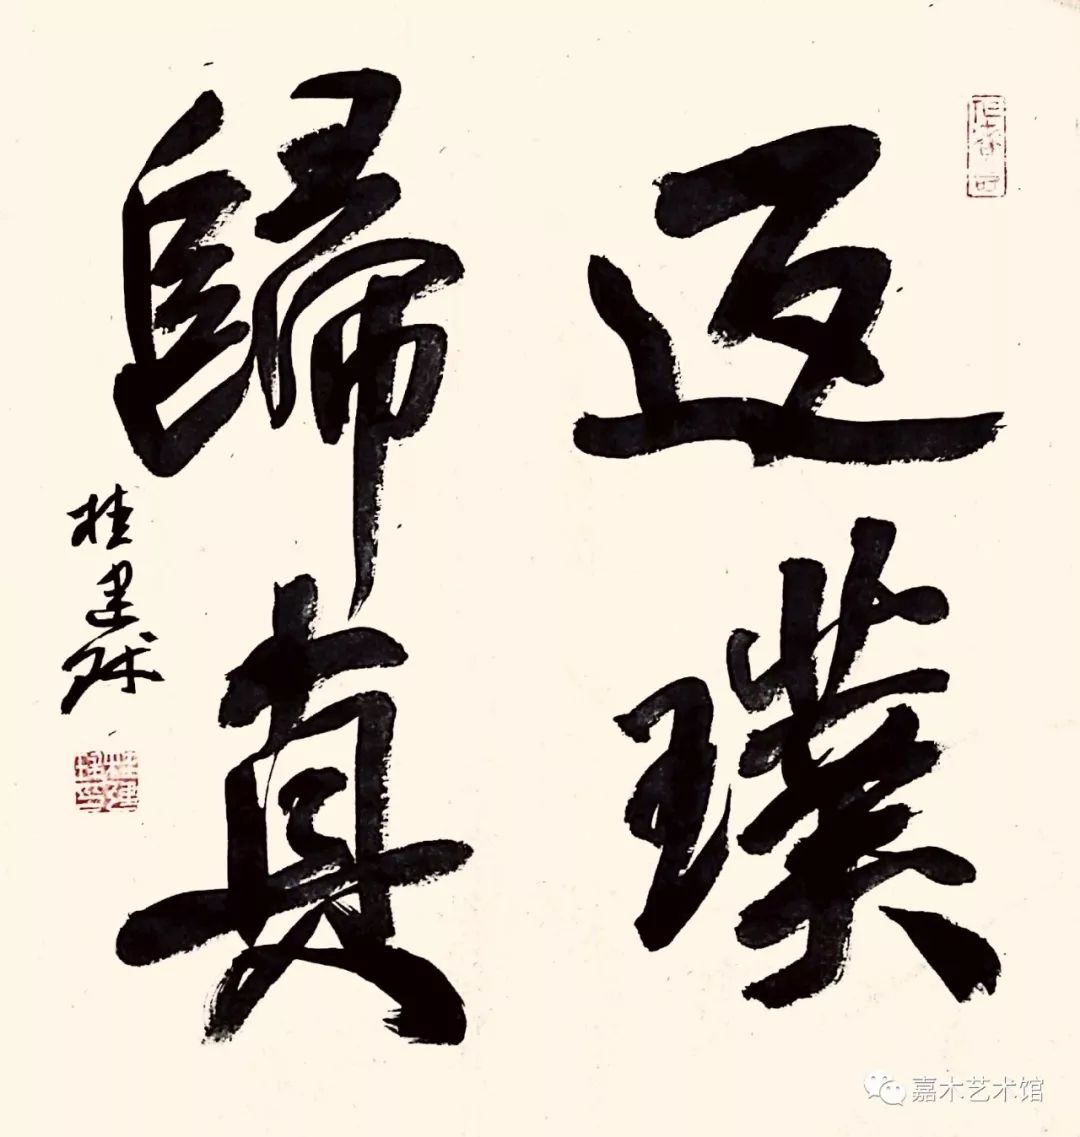 返璞
歸真
桂建球
嘉木艺术馆